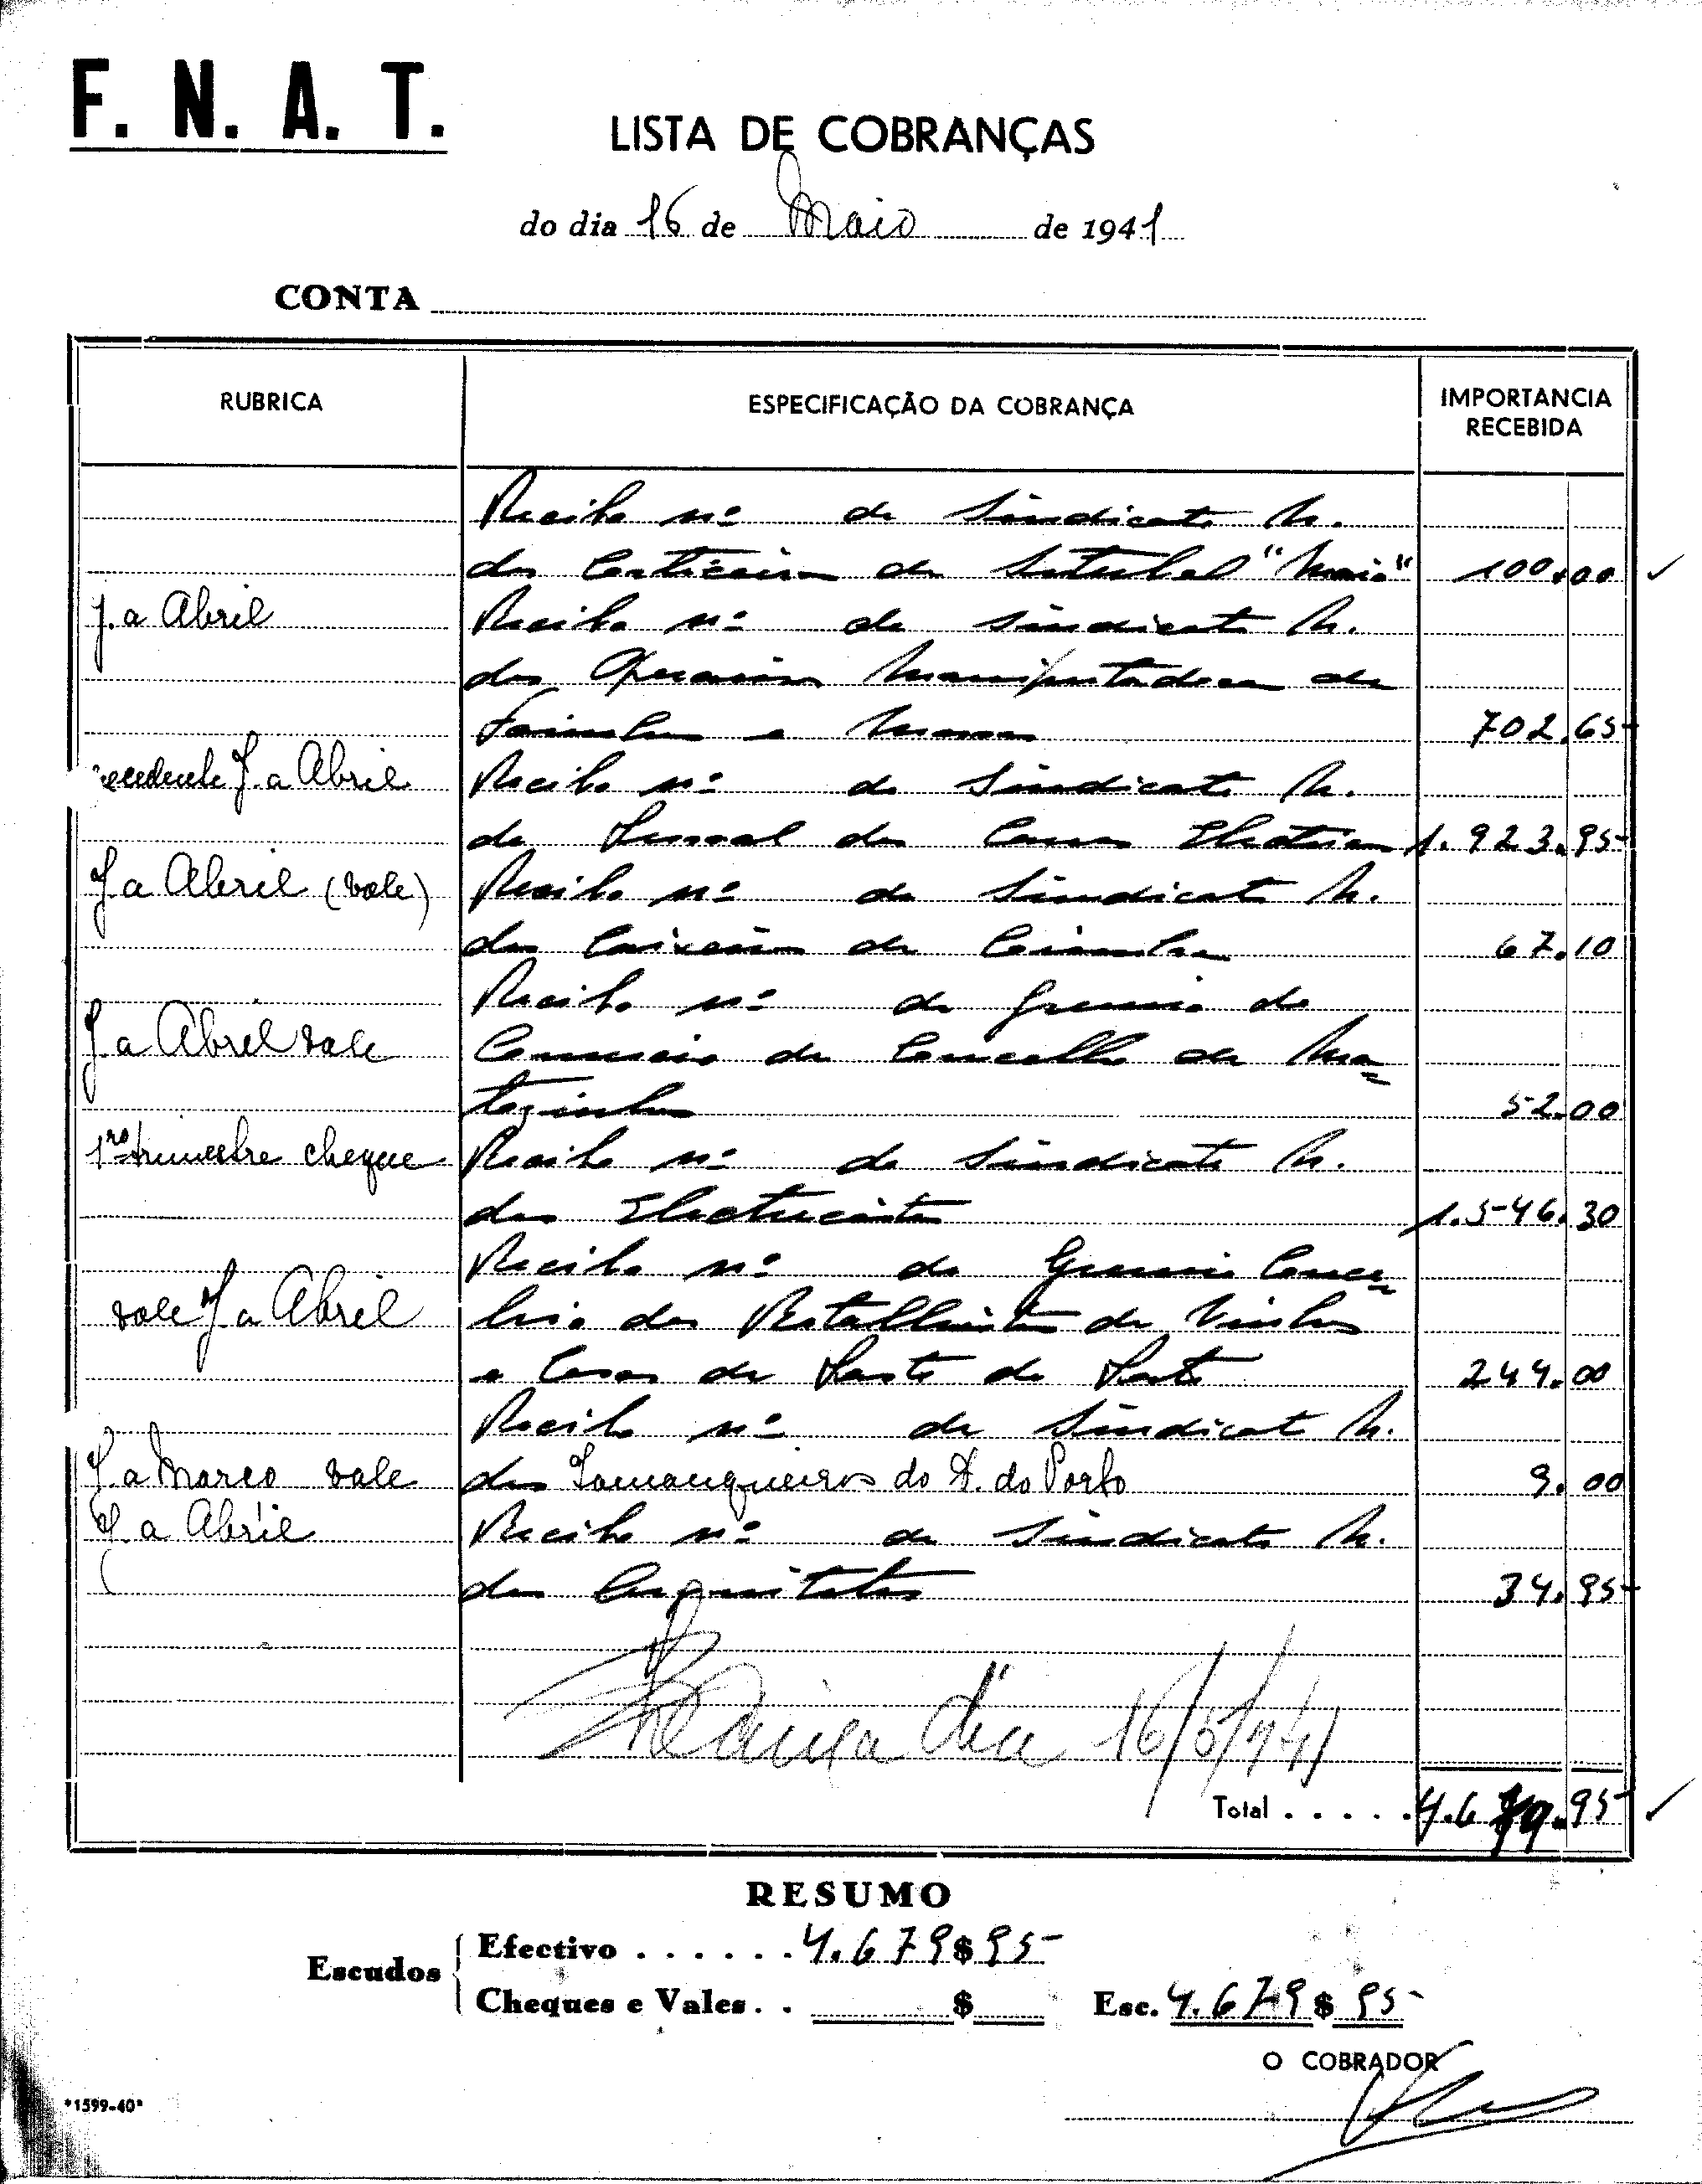 F. N. A. T.
LISTA DE COBRANÇAS
do dia 16 de Maio de 1941
CONTA
RUBRICA ESPECIFICAÇÃO DA COBRANÇA IMPORTANCIA RECEBIDA
Recibo nº do Sindicato N.
dos Corticeiros de Setubal "Maio" 100.00
J. a Abril Recibo nº do Sindicato N.
dos Operarios Manipuladores de
702.65
J. a Abril Recibo nº do Sindicato N.
do Pessoal das 1.923.95
J. a Abril (vale) Recibo nº do Sindicato N.
dos Caixeiros de Coimbra 67.10
Recibo nº do Gremio do
J. a Abril vale Comercio do Concelho de Ma-
tozinhos 52.00
1º trimestre cheque Recibo nº do Sindicato N.
dos Electricistas 1.546.30
Recibo nº do Gremio Conce-
vale J a Abril lhio dos Retalhistas de Vinhos
e Casas de Pasto do Porto 244.00
Recibo nº do Sindicato N.
J. a Março vale dos Tamanqueiros do D. do Porto 9.00
J. a Abril Recibo nº do Sindicato N.
dos Arquitetos 34.95
dia 16/5/941
Total . . . . . 4.679.95
RESUMO
Escudos
Efectivo . . . . . . 4.679$95
Cheques e Vales . . $ Esc. 4.679$95
O COBRADOR
"1599-40"